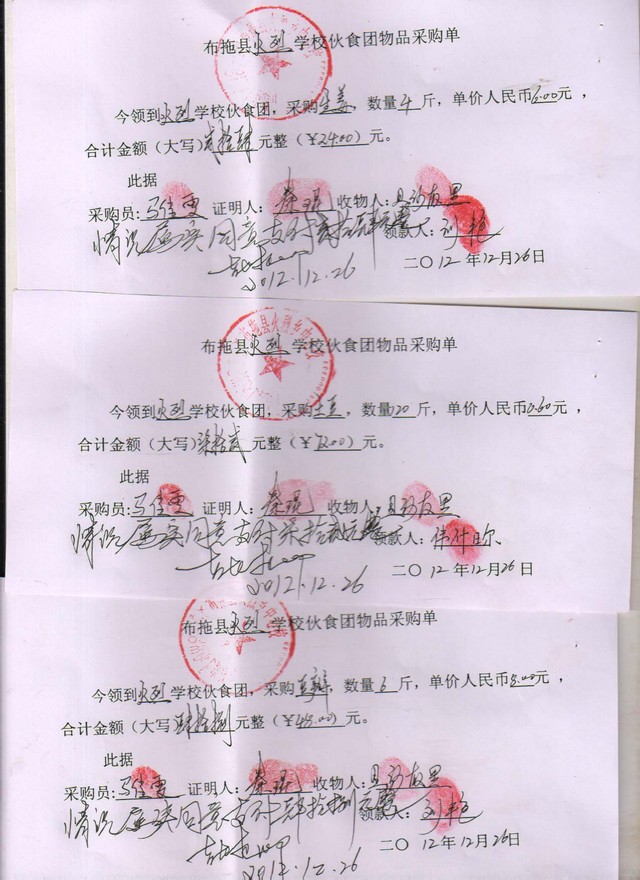 布拖县火烈学校伙食团物品采购单
今领到火烈学校伙食团，采购生姜，数量4斤，单价人民币6.00元，
合计金额（大写）贰拾肆元整（￥24.00）元。
此据
采购员:马佳雯 证明人: 收物人:
情况属实同意支付贰拾肆元整 领款人:刘艳
2012.12.26 二〇12年12月26日
布拖县火烈学校伙食团物品采购单
今领到火烈学校伙食团，采购土豆，数量120斤，单价人民币0.60元，
合计金额（大写）柒拾贰元整（￥72.00）元。
此据
采购员:马佳雯 证明人: 收物人:
情况属实同意支付柒拾贰元整 领款人:
2012.12.26 二〇12年12月26日
布拖县火烈学校伙食团物品采购单
今领到火烈学校伙食团，采购豆瓣，数量6斤，单价人民币元，
合计金额（大写）肆拾捌元整（￥48.00）元。
此据
采购员:马佳雯 证明人: 收物人:
情况属实同意支付肆拾捌元整 领款人:刘艳
2012.12.26 二〇12年12月26日